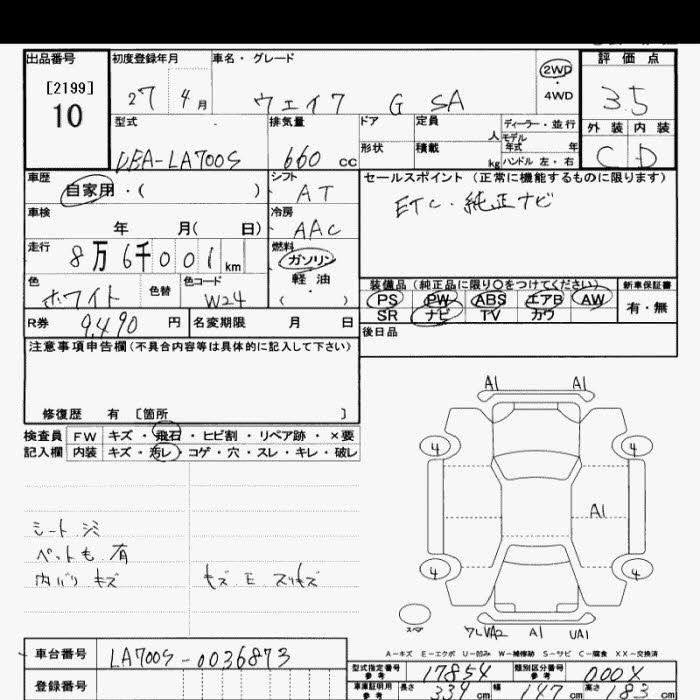 出品番号 初度登録年月 車名・グレード 2WD・4WD 評価点
[2199]
10
27 4月 ウェイク G SA 3.5
型式 排気量 ドア 定員 人 ディーラー・並行 外装 内装
モデル年式 年
DBA-LA700S 660cc 形状 積載 kg ハンドル 左・右 C D
車歴 自家用・( ) シフト AT セールスポイント(正常に機能するものに限ります)
ETC・純正ナビ
車検 年 月( 日) 冷房 AAC
走行 8万6千001km 燃料 ガソリン・軽油・( )
色 ホワイト 色替 色コード W24
装備品(純正品に限り○をつけてください) 新車保証書
PS PW ABS エアB AW 有・無
SR ナビ TV カワ
R券 9,490円 名変期限 月 日 後日品
注意事項申告欄(不具合内容等は具体的に記入して下さい)
修復歴 有 〔箇所 〕
検査員記入欄 FW キズ・飛石・ヒビ割・リペア跡・×要
内装 キズ・汚レ・コゲ・穴・スレ・キレ・破レ
シート シミ
ペットも 有
内バリ キズ
キズ E スリキズ
A1 A1
4 4
A1
4 4
スペア
ワレUA2 A1 UA1
A-キズ E-エクボ U-凹み W-補修跡 S-サビ C-腐食 XX-交換済
車台番号 LA700S-0036873
登録番号
型式指定番号 参考 17854 類別区分番号 参考 000X
車庫証明用 参考 長さ 339cm 幅 147cm 高さ 183cm